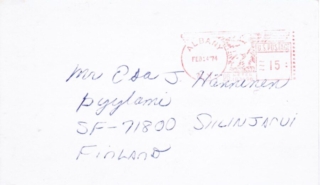 ALBANY
15
Mr Esa J Hänninen
pyylami
SF-71800 SIILINJARVI
FINLAND